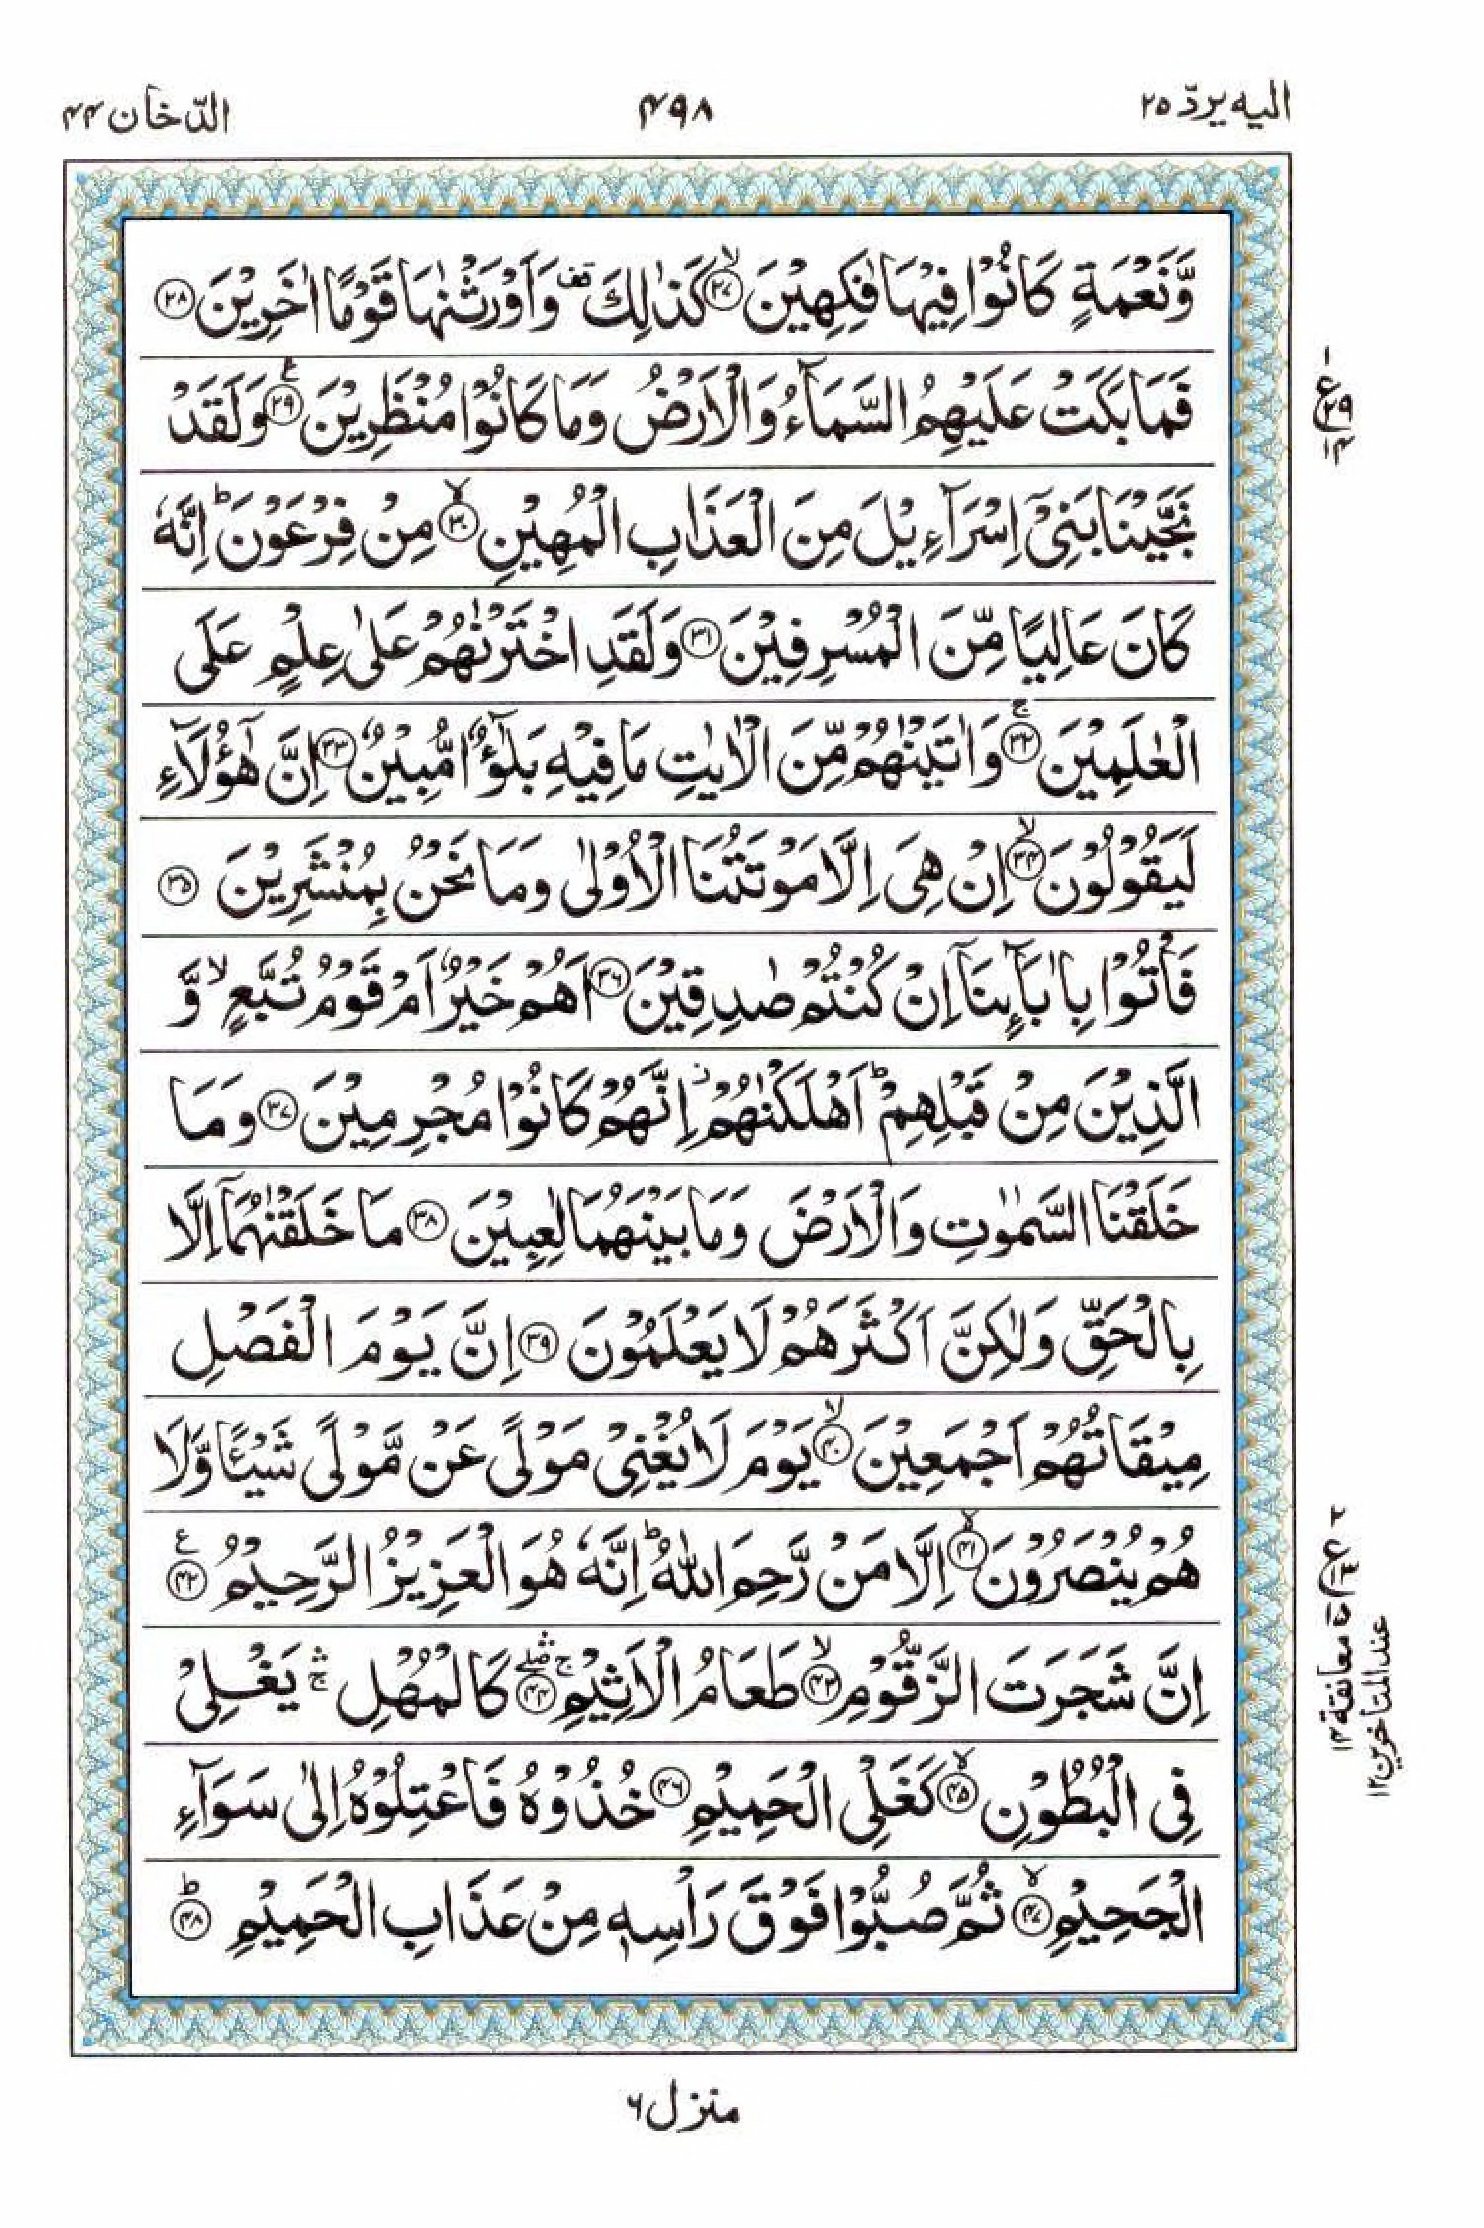 الیه یردّ ۲۵
۴۹۸
الدّخان ۴۴
وَّنَعْمَةٍ كَانُوْا فِيْهَا فٰكِهِيْنَ ۙ‏﴿۲۷﴾ كَذٰلِكَ ࣞ وَاَوْرَثْنٰهَا قَوْمًا اٰخَرِيْنَ ﴿۲۸﴾
فَمَا بَكَتْ عَلَيْهِمُ السَّمَآءُ وَالْاَرْضُ وَمَا كَانُوْا مُنْظَرِيْنَ ﴿۲۹﴾ ع وَلَقَدْ
نَجَّيْنَا بَنِىْٓ اِسْرَآءِيْلَ مِنَ الْعَذَابِ الْمُهِيْنِ ۙ﴿۳۰﴾ مِنْ فِرْعَوْنَ ؕ اِنَّهٗ
كَانَ عَالِيًا مِّنَ الْمُسْرِفِيْنَ ﴿۳۱﴾ وَلَقَدِ اخْتَرْنٰهُمْ عَلٰى عِلْمٍ عَلَى
الْعٰلَمِيْنَ ۚ﴿۳۲﴾ وَاٰتَيْنٰهُمْ مِّنَ الْاٰيٰتِ مَا فِيْهِ بَلٰٓؤٌا مُّبِيْنٌ ﴿۳۳﴾ اِنَّ هٰٓؤُلَآءِ
لَيَقُوْلُوْنَ ۙ﴿۳۴﴾ اِنْ هِىَ اِلَّا مَوْتَتُنَا الْاُوْلٰى وَمَا نَحْنُ بِمُنْشَرِيْنَ ﴿۳۵﴾
فَاْتُوْا بِاٰبَآئِنَآ اِنْ كُنْتُمْ صٰدِقِيْنَ ﴿۳۶﴾ اَهُمْ خَيْرٌ اَمْ قَوْمُ تُبَّعٍ ۙ وَّ
الَّذِيْنَ مِنْ قَبْلِهِمْ ؕ اَهْلَكْنٰهُمْ ؗ اِنَّهُمْ كَانُوْا مُجْرِمِيْنَ ﴿۳۷﴾ وَمَا
خَلَقْنَا السَّمٰوٰتِ وَالْاَرْضَ وَمَا بَيْنَهُمَا لٰعِبِيْنَ ﴿۳۸﴾ مَا خَلَقْنٰهُمَآ اِلَّا
بِالْحَقِّ وَلٰكِنَّ اَكْثَرَهُمْ لَا يَعْلَمُوْنَ ﴿۳۹﴾ اِنَّ يَوْمَ الْفَصْلِ
مِيْقَاتُهُمْ اَجْمَعِيْنَ ۙ﴿۴۰﴾ يَوْمَ لَا يُغْنِىْ مَوْلًى عَنْ مَّوْلًى شَيْـًٔا وَّلَا
هُمْ يُنْصَرُوْنَ ۙ﴿۴۱﴾ اِلَّا مَنْ رَّحِمَ اللّٰهُ ؕ اِنَّهٗ هُوَ الْعَزِيْزُ الرَّحِيْمُ ﴿۴۲﴾ ع
اِنَّ شَجَرَتَ الزَّقُّوْمِ ۙ﴿۴۳﴾ طَعَامُ الْاَثِيْمِ ۛۚ ۖ﴿۴۴﴾ كَالْمُهْلِ ۛۚ يَغْلِىْ
فِى الْبُطُوْنِ ۙ﴿۴۵﴾ كَغَلْىِ الْحَمِيْمِ ﴿۴۶﴾ خُذُوْهُ فَاعْتِلُوْهُ اِلٰى سَوَآءِ
الْجَحِيْمِ ۙ﴿۴۷﴾ ثُمَّ صُبُّوْا فَوْقَ رَاْسِهٖ مِنْ عَذَابِ الْحَمِيْمِ ؕ﴿۴۸﴾
۱ ع ۲۹ ۱۴
۲ ع ۱۳
معانقة ۱۳
عند المتاخرین ۱۲
منزل ۶